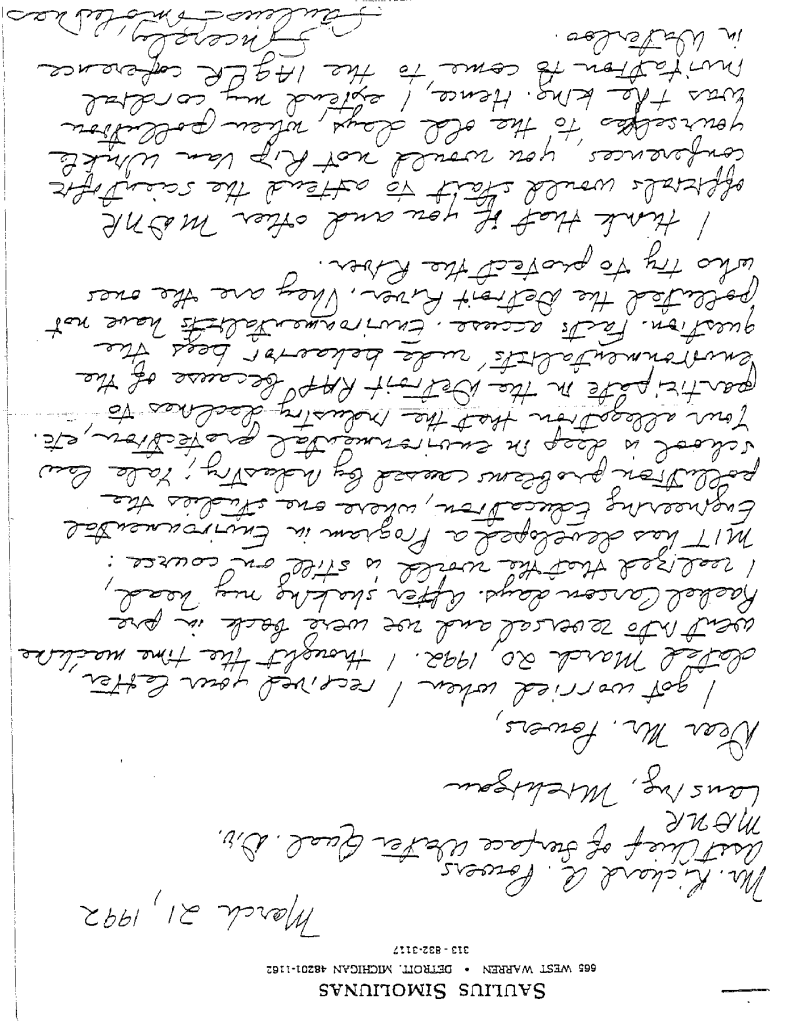 SAULIUS SIMOLIUNAS
665 WEST WARREN • DETROIT, MICHIGAN 48201-1162
313-832-3117
March 21, 1992
Mr. Richard A. Powers
Asst Chief of Surface Water Qual. Div.
MDNR
Lansing, Michigan
Dear Mr. Powers,
I got worried when I received your letter,
dated March 20, 1992. I thought the time machine
went into reversal and we were back in pre
Rachel Carson days. After shaking my head,
I realized that the world is still on course:
MIT has developed a Program in Environmental
Engineering Education, where one studies the
pollution problems caused by industry; Yale law
school is deep in environmental protection, etc.
Your allegation that the industry declines to
participate in the Detroit RAP because of the
environmentalists' rude behavior begs the
question. Facts accuse. Environmentalists have not
polluted the Detroit River. They are the ones
who try to protect the River.
I think that if you and other MDNR
officials would start to attend the scientific
conferences, you would not Rip Van Winkle
yourselfs to the old days, when pollution
was the king. Hence, I extend my cordial
invitation to come to the IAGLR coference
in Waterloo.
Sincerely,
Saulius Simoliunas